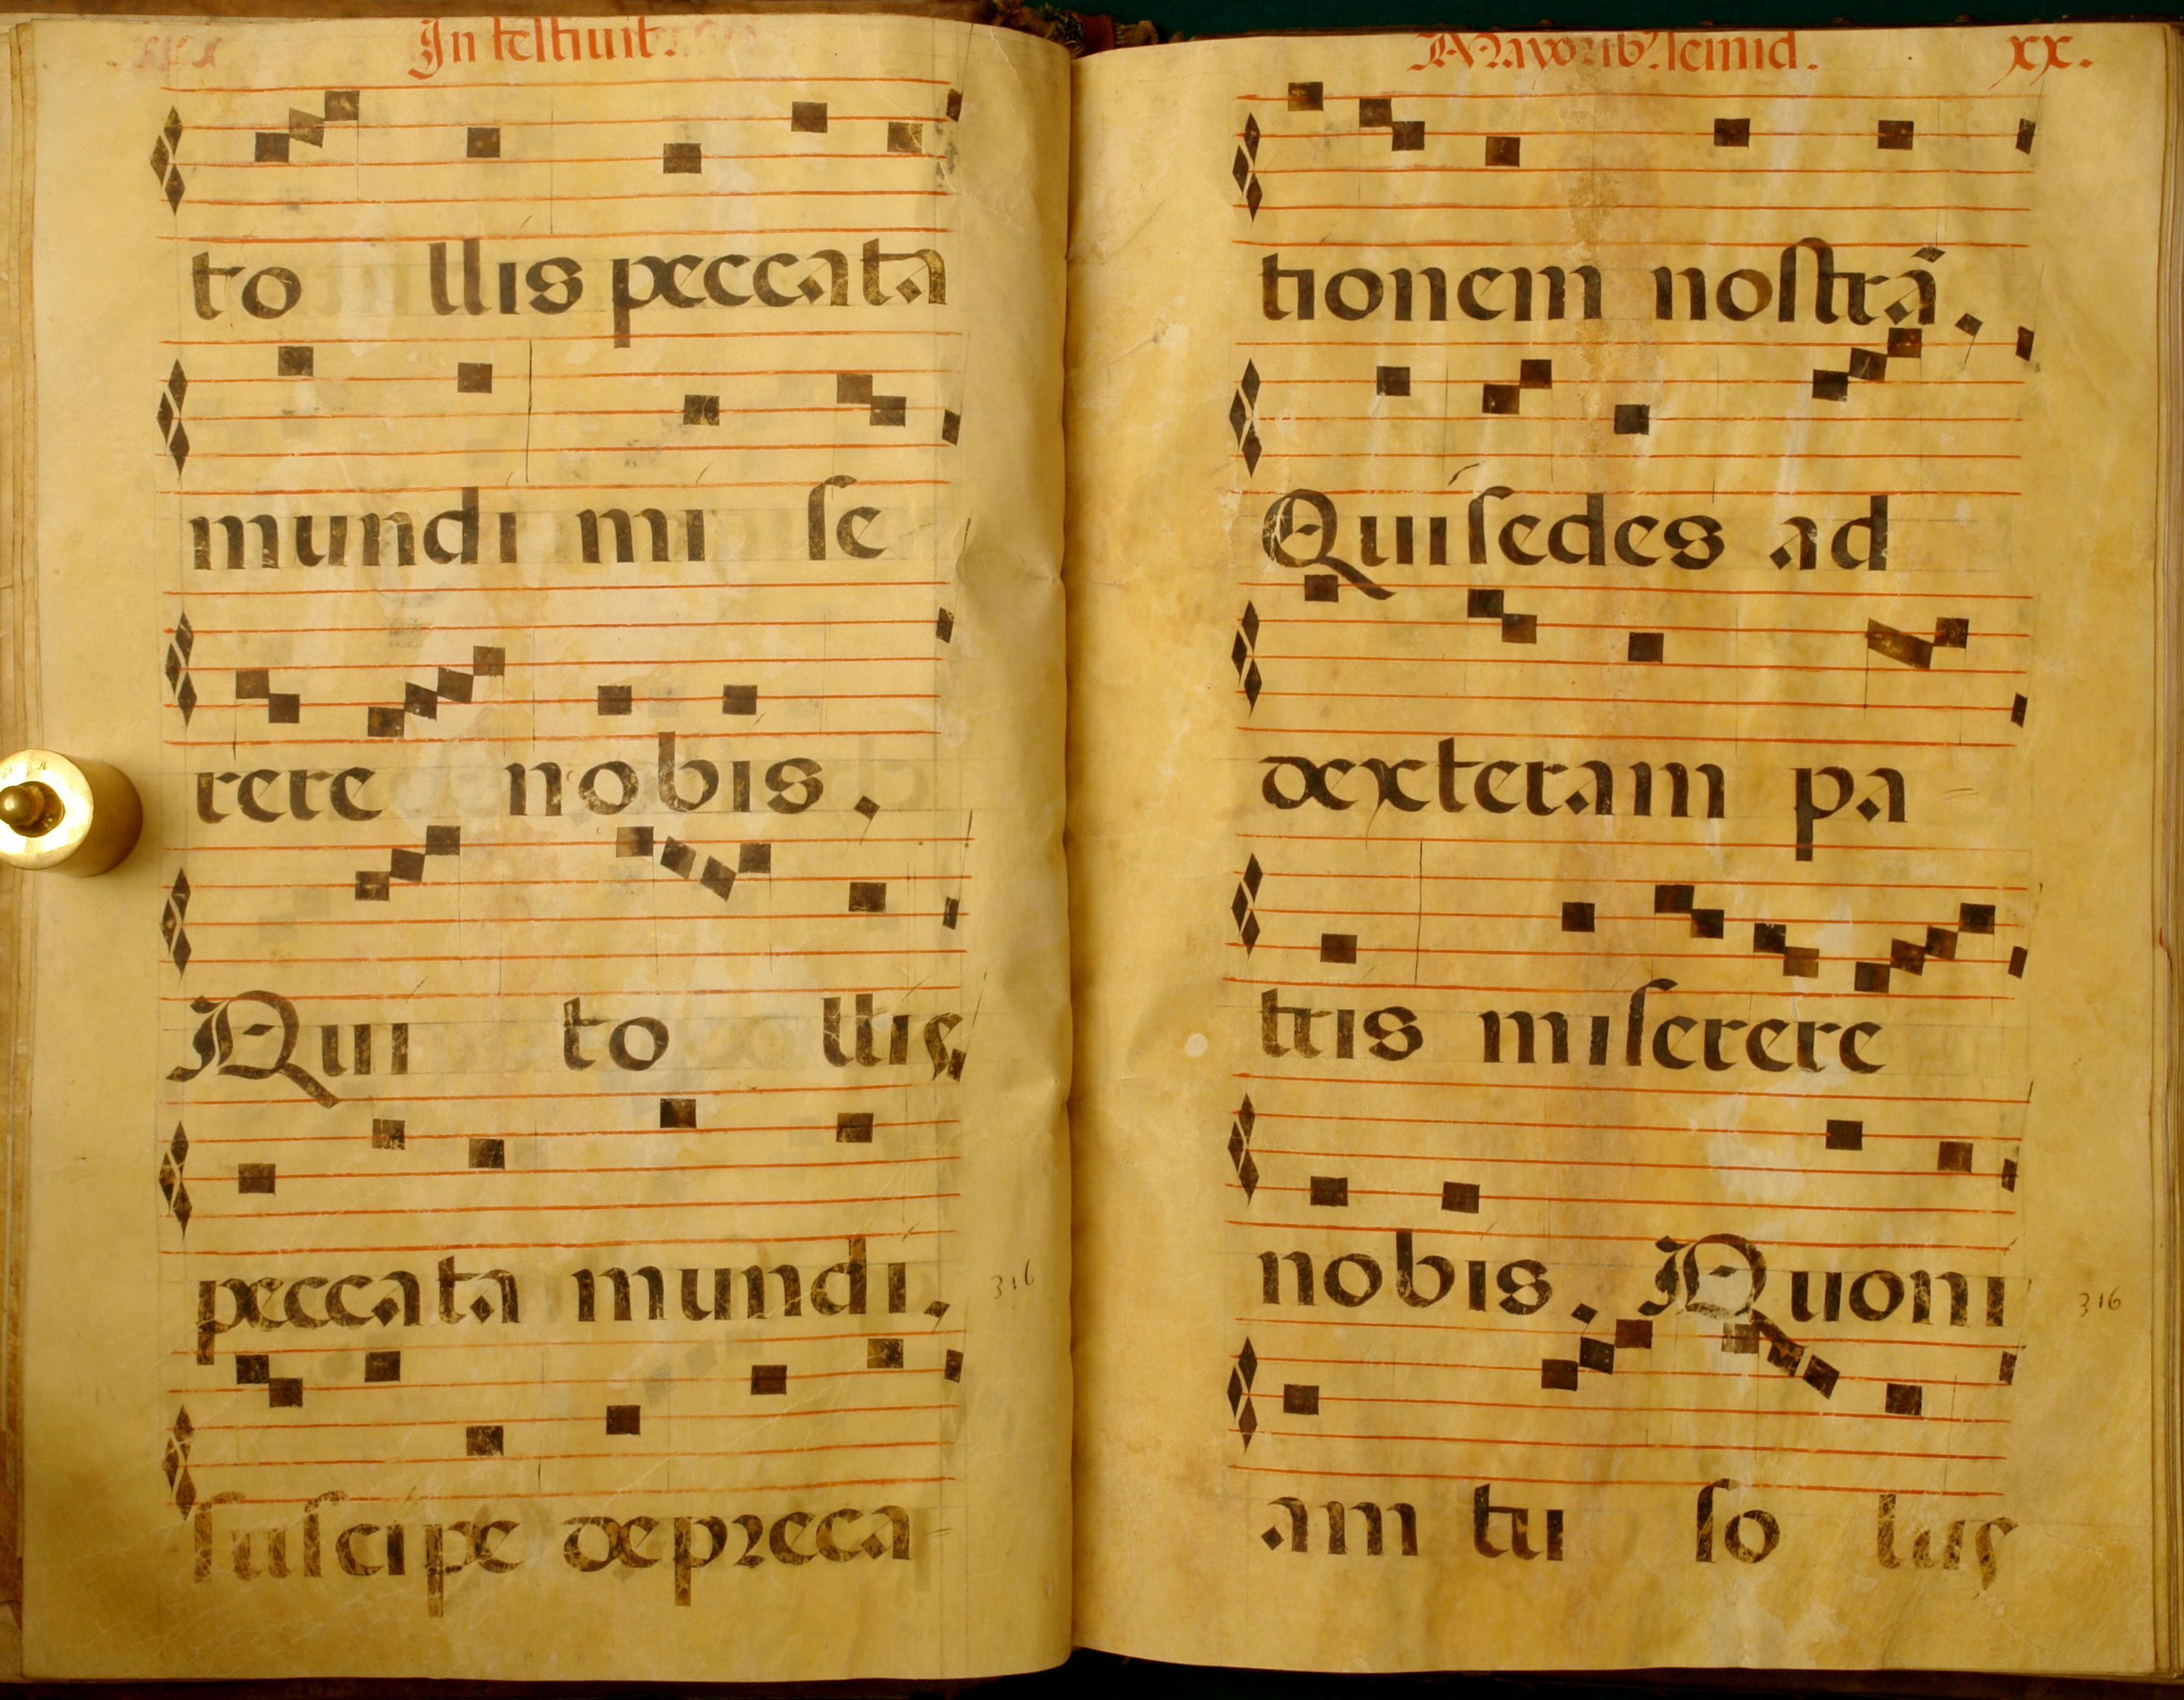 In festiuit.
to llis peccata
mundi mi se
rere nobis.
Qui to llis
peccata mundi.
316
suscipe depreca
Mayorib' semid.
xx.
tionem nostrã.
Qui sedes ad
dexteram pa
tris miserere
nobis. Quoni
316
am tu so lus